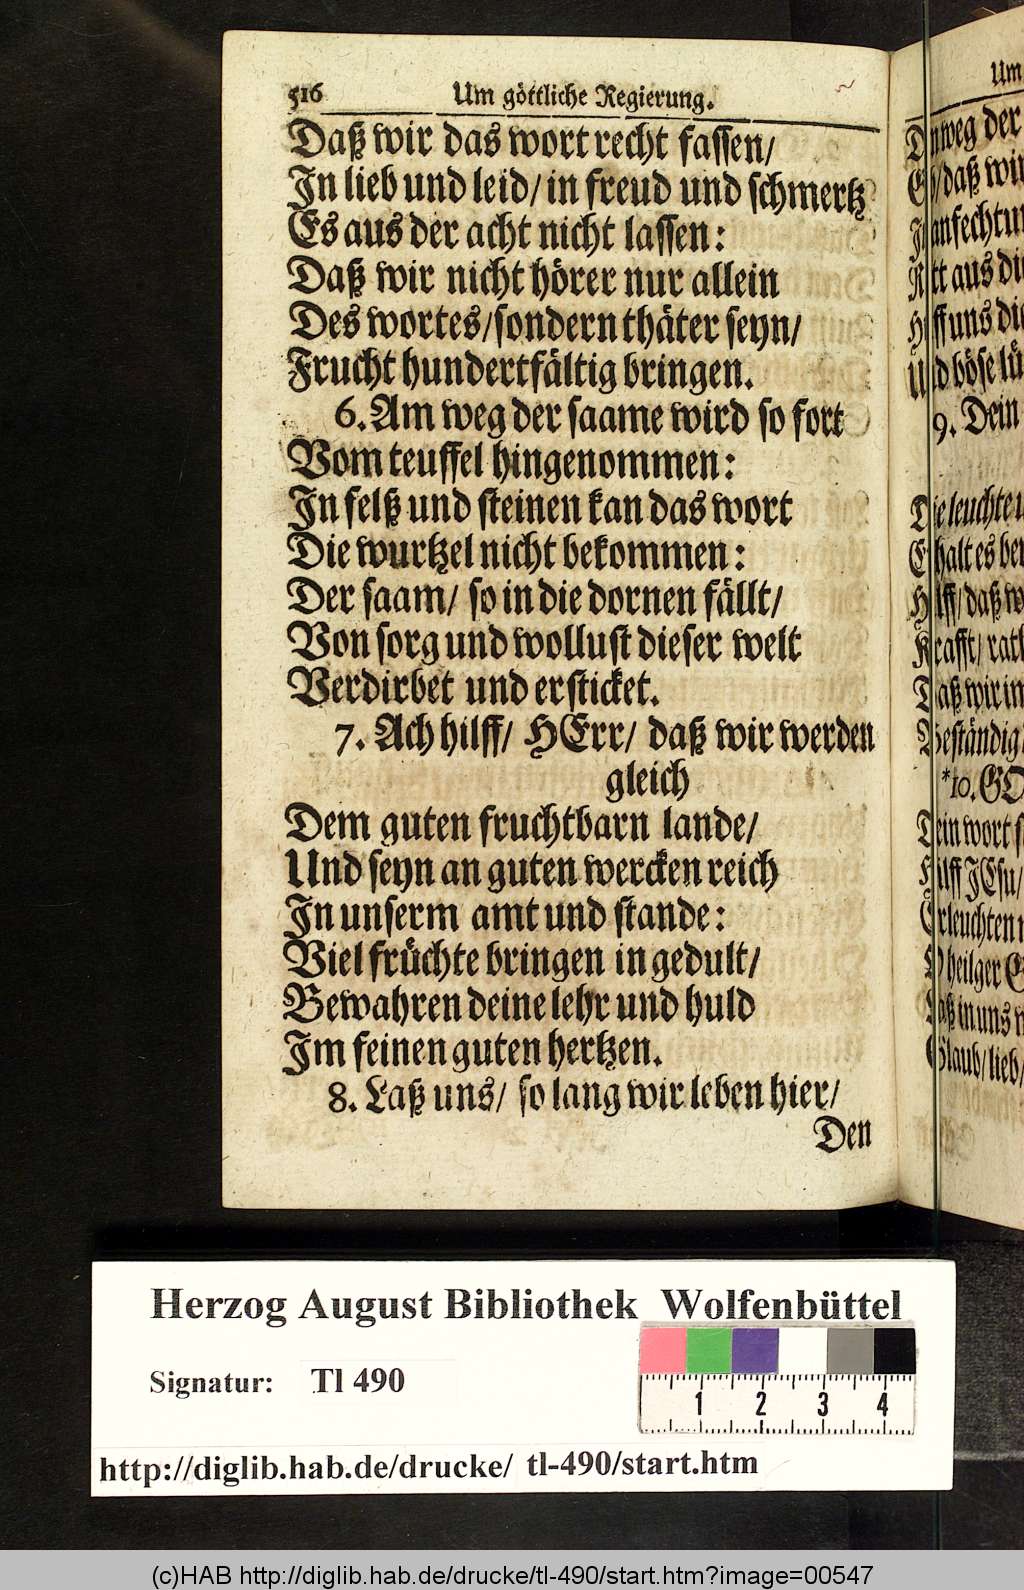 516 Um göttliche Regierung.
Daß wir das wort recht fassen/
In lieb und leid/ in freud und schmertz
Es aus der acht nicht lassen:
Daß wir nicht hörer nur allein
Des wortes/sondern thäter seyn/
Frucht hundertfältig bringen.
6. Am weg der saame wird so fort
Vom teuffel hingenommen:
In felß und steinen kan das wort
Die wurtzel nicht bekommen:
Der saam/ so in die dornen fällt/
Von sorg und wollust dieser welt
Verdirbet und ersticket.
7. Ach hilff/ HErr/ daß wir werden
gleich
Dem guten fruchtbarn lande/
Und seyn an guten wercken reich
In unserm amt und stande:
Viel früchte bringen in gedult/
Bewahren deine lehr und huld
Im feinen guten hertzen.
8. Laß uns/ so lang wir leben hier/
Den
Um
weg der
daß wir
anfechtun
aus die
uns die
böse lü
9. Dein
leuchte
halt es
daß
Krafft/
wir
Beständig
*10. GO
Dein wort
Hilff JEsu/
Erleuchten
O heilger
in uns
Glaub/ lieb/
Herzog August Bibliothek Wolfenbüttel
Signatur: Tl 490
1 2 3 4
http://diglib.hab.de/drucke/ tl-490/start.htm
(c)HAB http://diglib.hab.de/drucke/tl-490/start.htm?image=00547